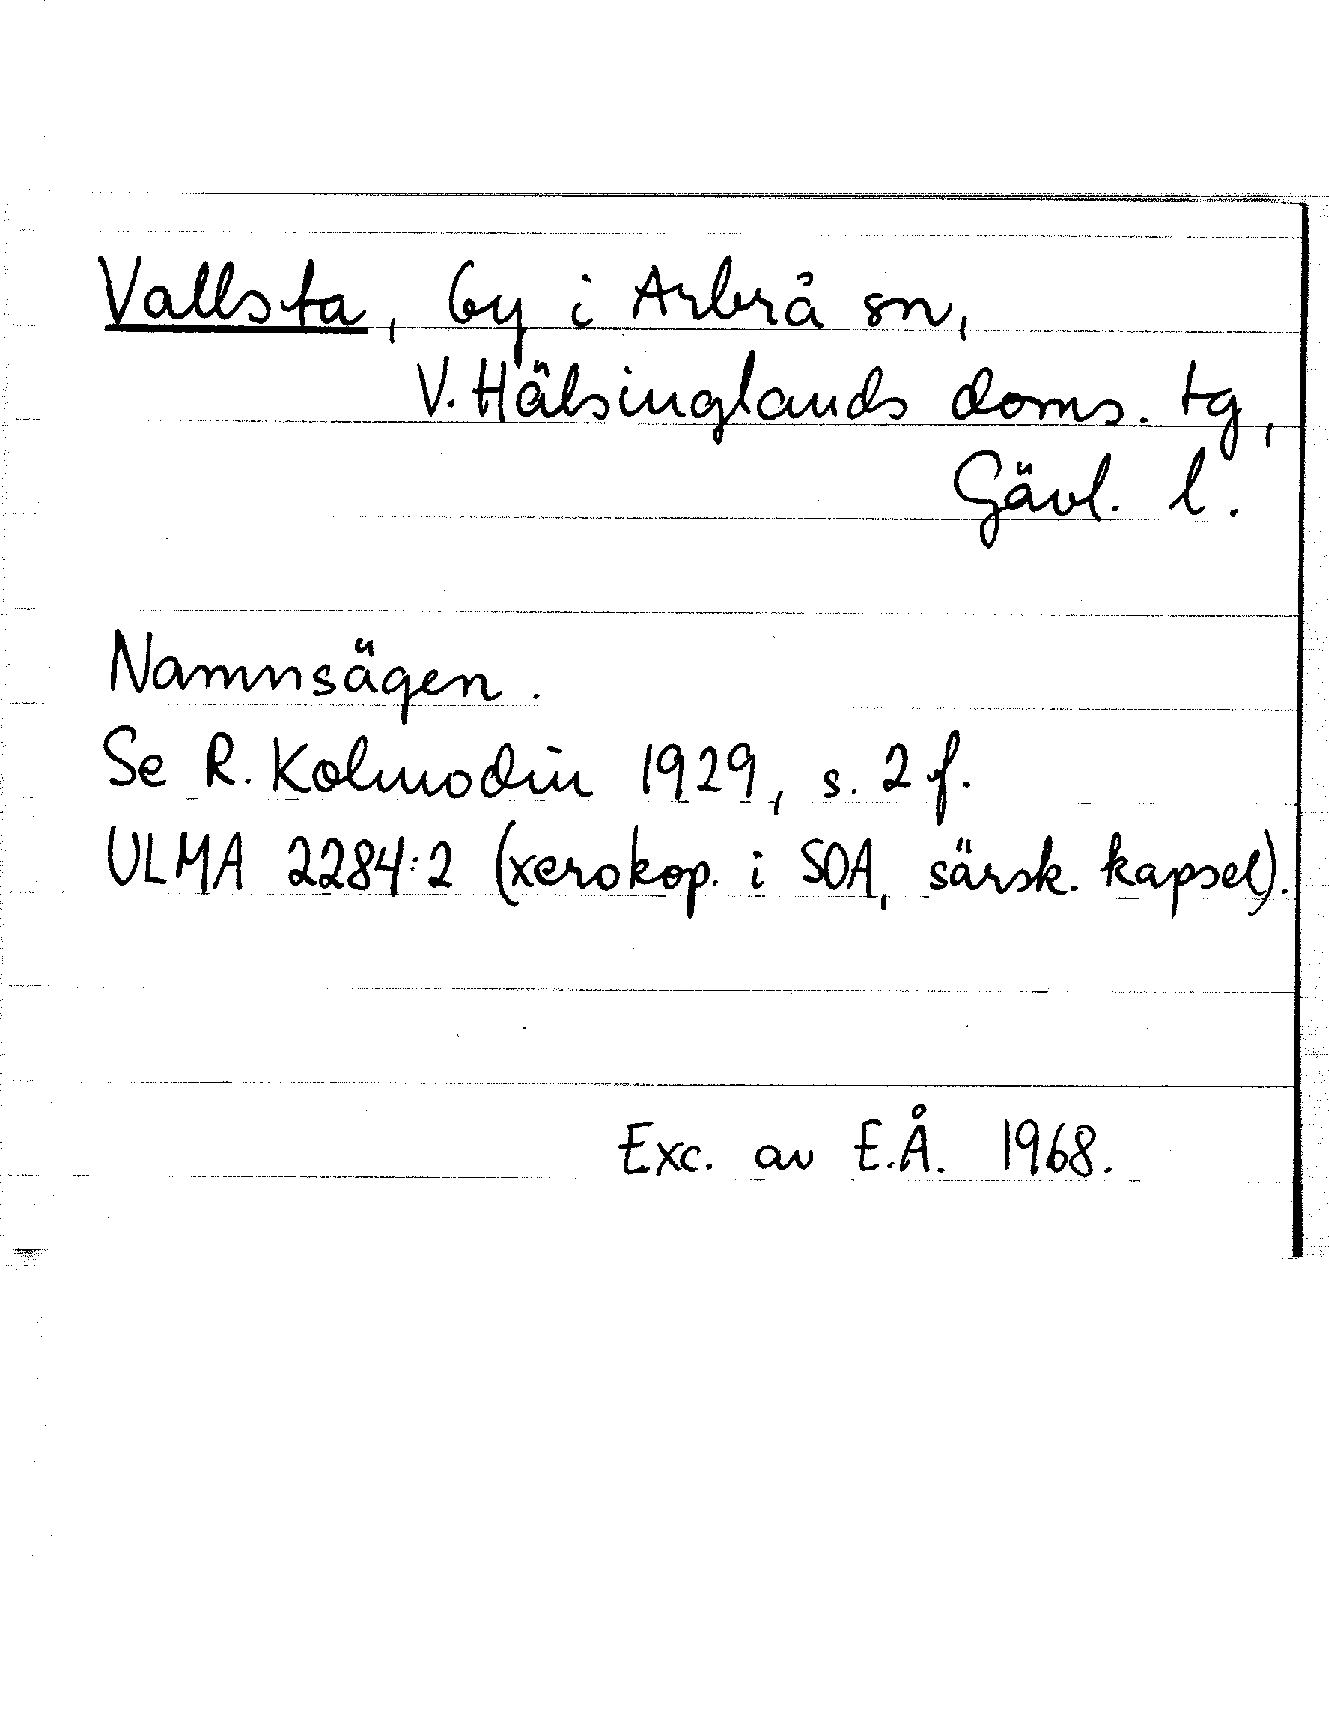 Vallsta, by i Arbrå sn,
V. Hälsinglands doms. tg,
Gävl. l.
Namnsägen.
Se R. Kolmodin 1929, s. 2 f.
ULMA 2284:2 (xerokop. i SOA, särsk. kapsel).
Exc. av E.Å. 1968.